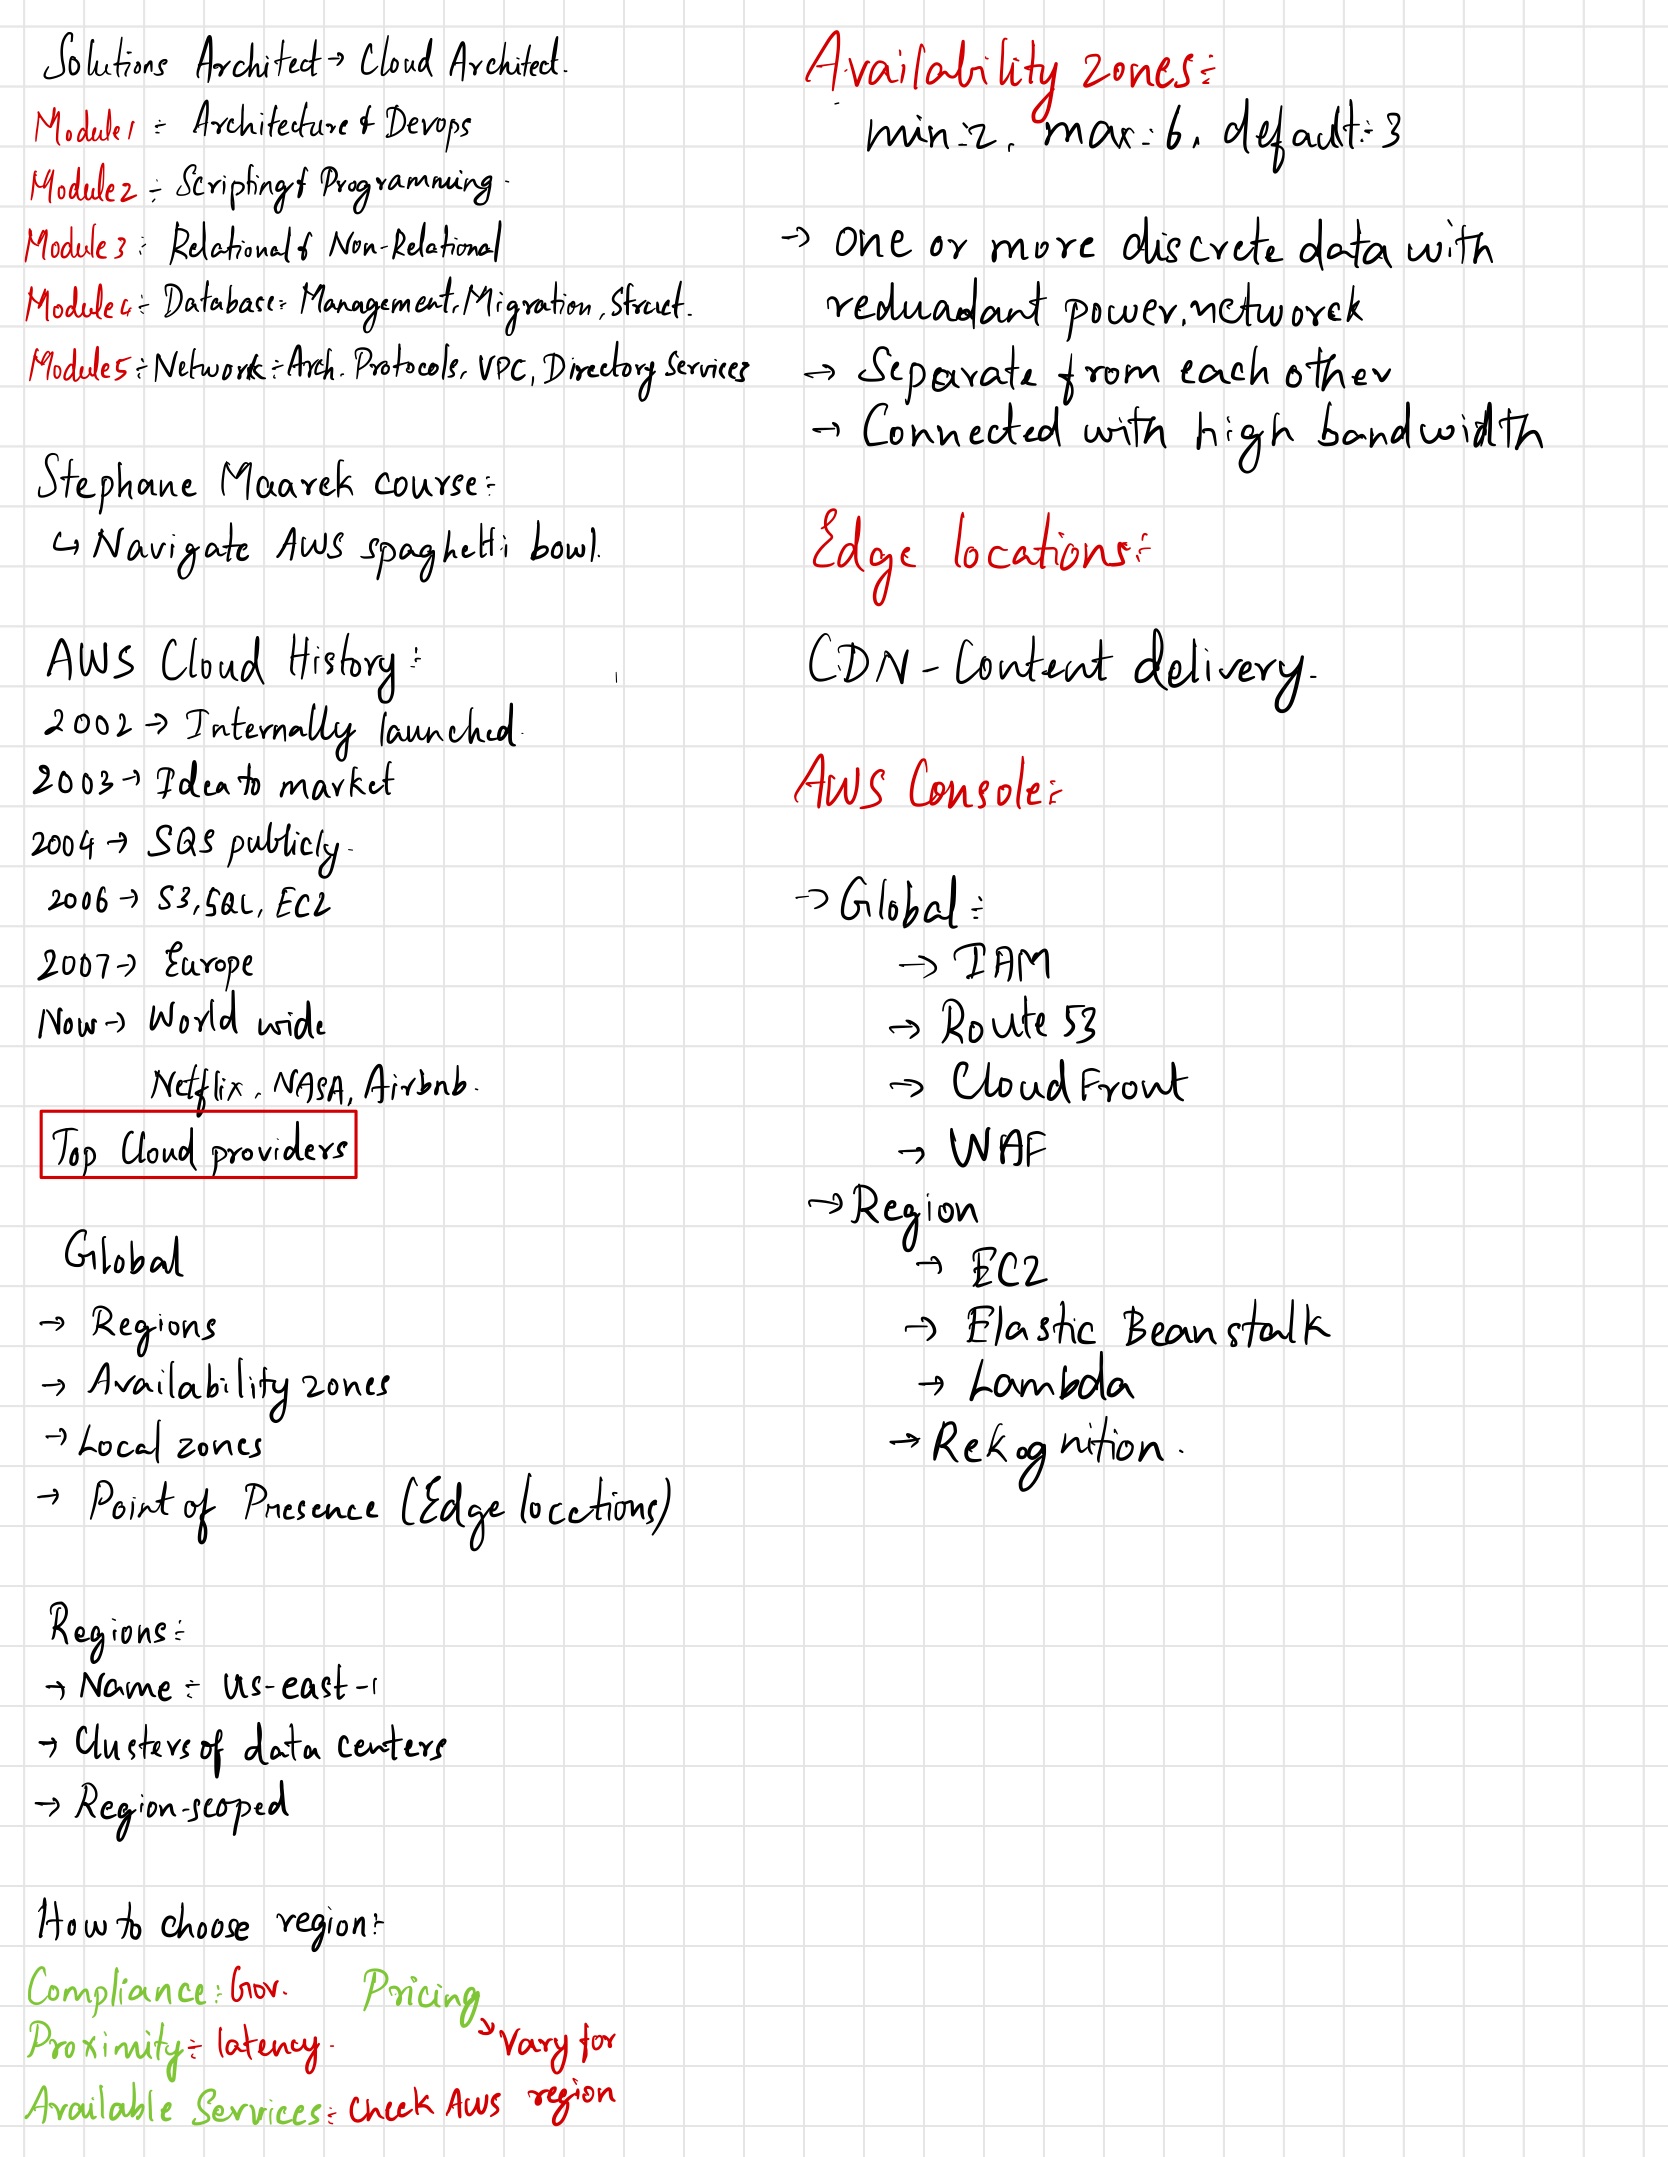 Solutions Architect → Cloud Architect.
Module 1 :- Architecture & Devops
Module 2 :- Scripting & Programming.
Module 3 :- Relational & Non-Relational
Module 4 :- Database:- Management, Migration, Struct.
Module 5 :- Network :- Arch. Protocols, VPC, Directory Services
Stephane Maarek course:-
↳ Navigate AWS spaghetti bowl.
AWS Cloud History :-
2002 → Internally launched.
2003 → Idea to market
2004 → SQS publicly.
2006 → S3, SQL, EC2
2007 → Europe
Now → World wide
Netflix, NASA, Airbnb.
Top Cloud providers
Global
→ Regions
→ Availability zones
→ Local zones
→ Point of Presence (Edge locctions)
Regions:-
→ Name :- us-east-1
→ Clusters of data centers
→ Region-scoped
How to choose region:-
Compliance:- Gov.
Proximity:- latency.
Available Services:- Check AWS
Pricing
↘ Vary for
region
Availability zones:-
min:-2, max:-6, default:-3
→ one or more discrete data with
reduadant power, networck
→ Separate from each other
→ Connected with high bandwidth
Edge locations:-
CDN - Content delivery.
AWS Console:-
→ Global :-
→ IAM
→ Route 53
→ CloudFront
→ WAF
→ Region
→ EC2
→ Elastic Beanstalk
→ Lambda
→ Rekognition.